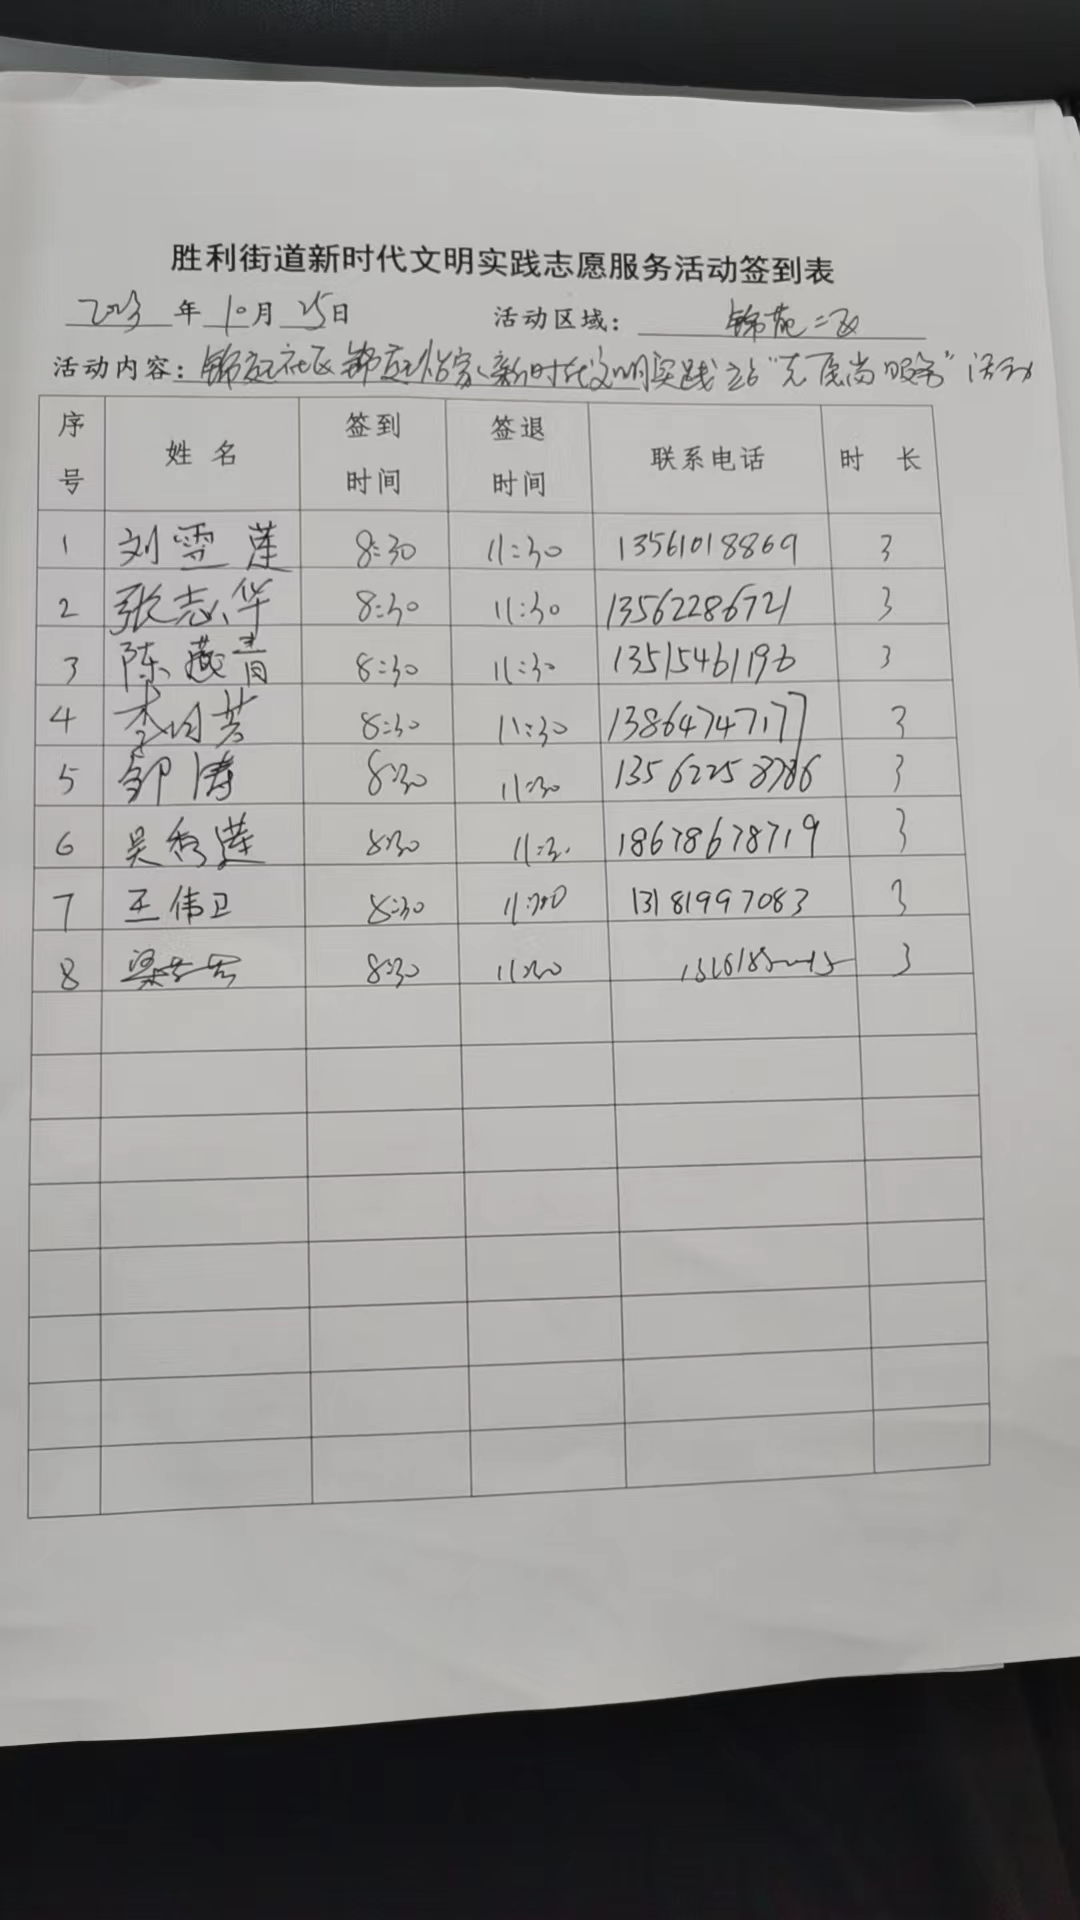 胜利街道新时代文明实践志愿服务活动签到表
2023 年 10月 25日 活动区域: 锦苑二区
活动内容: 锦苑社区锦苑 家、新时代文明实践站"志愿 服务"活动
序号 姓名 签到时间 签退时间 联系电话 时长
1 刘雪莲 8:30 11:30 13561018869 3
2 张志华 8:30 11:30 13562286721 3
3 陈燕青 8:30 11:30 13515461196 3
4 李 芳 8:30 11:30 13864747177 3
5 邹涛 8:30 11:30 13562258786 3
6 吴秀莲 8:30 11:30 18678678719 3
7 王伟卫 8:30 11:30 13181997083 3
8 梁 8:30 11:30 3